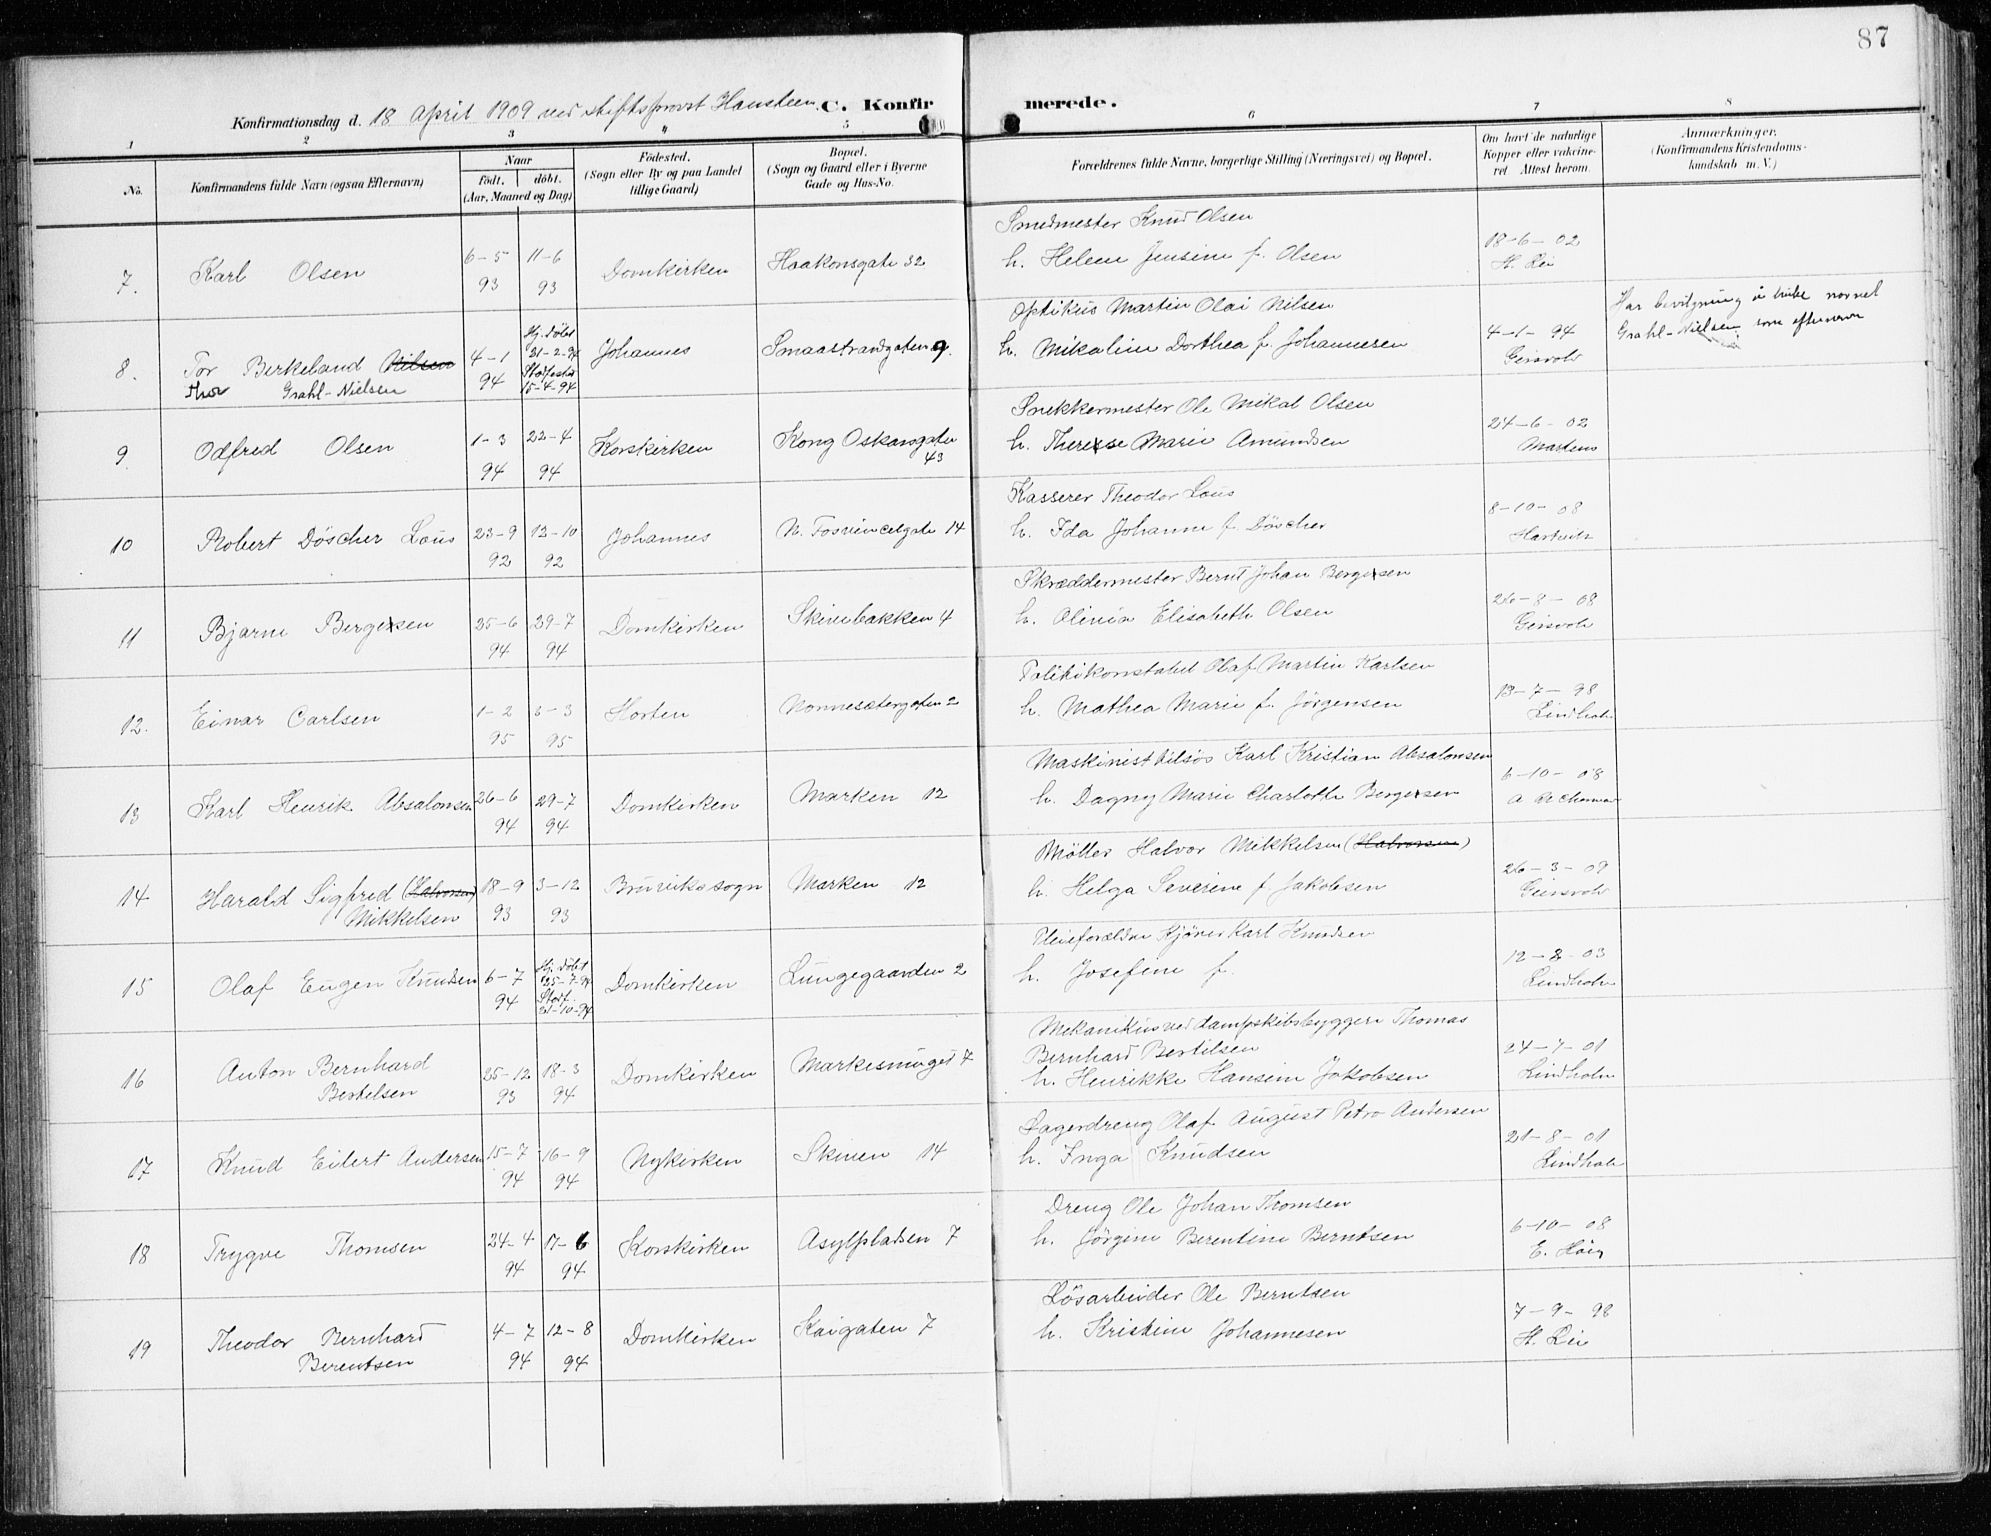 87
Konfirmationsdag d. 18 April 1909 ved stiftsprovst Hansteen. C. Konfirmerede.
1 2 3 4 5 6 7 8
No. Konfirmandens fulde Navn (ogsaa Efternavn) Naar Födt, döbt. (Aar, Maaned og Dag) Födested. (Sogn eller By og paa Landet tillige Gaard) Bopæl. (Sogn og Gaard eller i Byerne Gade og Hus-No. Forældrenes fulde Navne, borgerlige Stilling (Næringsvei) og Bopæl. Om havt de naturlige Kopper eller vakcineret. Attest herom. Anmærkninger. (Konfirmandens Kristendomskundskab m. V.)
Smedmester Knud Olsen
7. Karl Olsen 6-5 93 11-6 93 Domkirken Haakonsgate 32 h. Helene Jensine f. Olsen 18-6-02 H. Lie
Optikus Martin Olai Nilsen
8. Tor Birkeland Nilsen 4-1 94 Hj. döbt 21-2-94 Stadfestet 15-4-94 Johannes Smaastrandgaten 9. h. Mikaline Dorthea f. Johannesen 4-1-94 Geirsvold Har bevilgning å bruke navnet
Thor Grahl-Nielsen Grahl-Nielsen som efternavn
Snekkermester Ole Mikal Olsen
9. Odfred Olsen 1-3 94 22-4 94 Korskirken Kong Oskarsgate 43 h. Therese Marie Amundsen 24-6-02 Martens
Kasserer Theodor Lous
10 Robert Döscher Lous 23-9 92 12-10 92 Johannes N. Fosvinckelgate 14 h. Ida Johanne f. Döscher 8-10-08 Hartvik
Skræddermester Bernt Johan Bergersen
11 Bjarne Bergersen 25-6 94 29-7 94 Domkirken Skivebakken 4 h. Olivia Elisabeth Olsen 26-8-08 Geirsvold
Politikonstabel Olaf Martin Karlsen
12. Einar Carlsen 1-2 95 3-3 95 Horten Nonnesætergaten 2 h. Mathea Marie f. Jörgensen 13-7-98 Lindholm
Maskinist Nilsös Karl Kristian Absalonsen
13 Karl Henrik Absalonsen 26-6 94 29-7 94 Domkirken Marken 12 h. Dagny Marie Charlotte Bergersen 6-10-08
Möller Halvor Mikkelsen (Halvorsen)
14 Harald Sigfred (Halvorsen) 18-9 93 3-12 93 Bruviks sogn Marken 12 h. Helga Severine f. Jakobsen 26-3-09 Geirsvold
Mikkelsen
Pleieforældre Kjörer Karl Knudsen
15 Olaf Eugen Knudsen 6-7 94 Hj. döbt 25-7-94 Stadf. 21-10-94 Domkirken Lungegaarden 2 h. Josefine f. 12-2-03 Lindholm
Mekanikus ved dampskibsbyggeri Thomas
16 Anton Bernhard 25-12 93 18-3 94 Domkirken Markesmuget 7 Bernhard Bertilsen 24-7-01 Lindholm
Bertelsen h. Henrikke Hansine Jakobsen
Dagerdreng Olaf August Petro Andersen
17 Knud Eilert Andersen 15-7 94 16-9 94 Nykirken Skiven 14 h. Inga Knudsen 21-8-01 Lindholm
Dreng Ole Johan Thomsen
18 Trygve Thomsen 24-4 94 17-6 94 Korskirken Asylpladsen 7 h. Jörgine Berentine Berntsen 6-10-08 E. Höeg
Lösarbeider Ole Berntsen
19 Theodor Bernhard 4-7 94 12-8 94 Domkirken Kaigaten 7 h. Kristine Johannesen 7-9-98 H. Lie
Berentsen